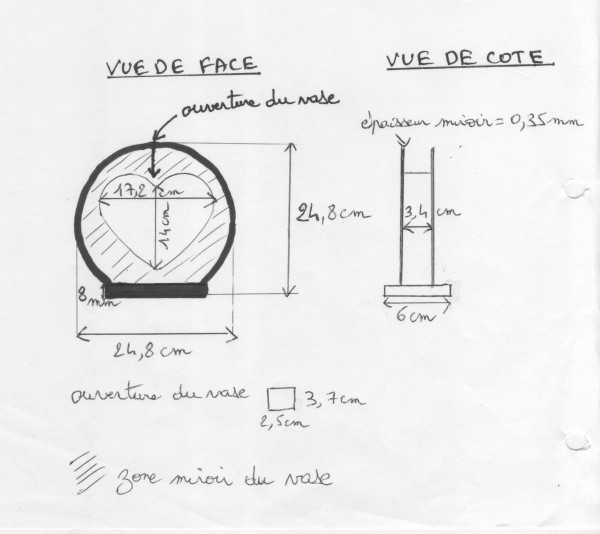 VUE DE FACE
VUE DE COTE
ouverture du vase
épaisseur miroir = 0,35mm
17,2 cm
14cm
24,8cm
3,4 cm
8mm
6cm
24,8 cm
ouverture du vase
3,7cm
2,5cm
zone miroir du vase